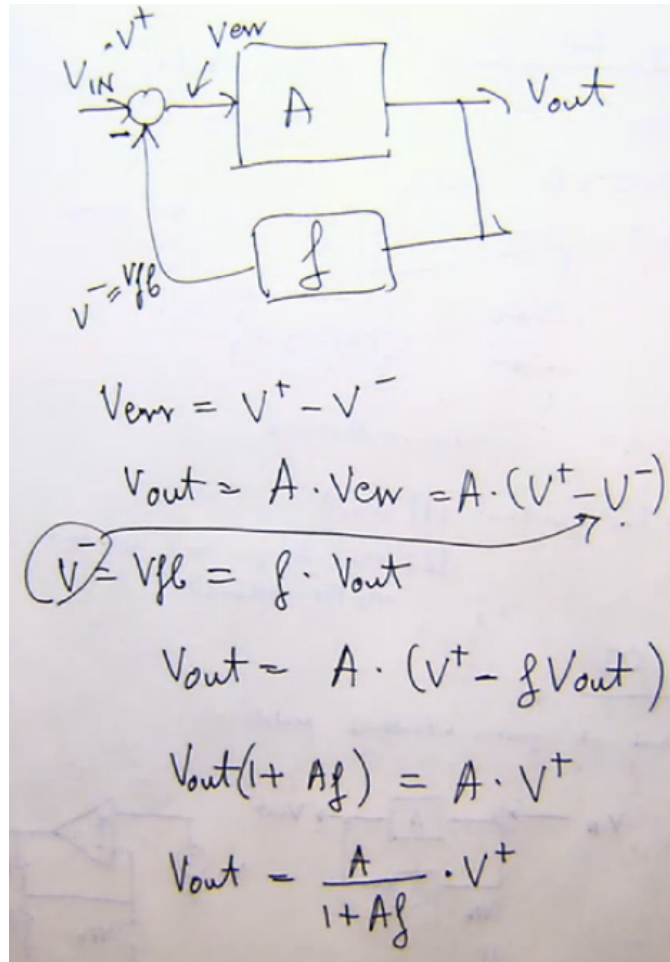 V⁺
Verr
VIN
A
Vout
-
f
V⁻=Vfb
Verr = V⁺ - V⁻
Vout = A · Verr = A · (V⁺ - V⁻)
V⁻ = Vfb = f · Vout
Vout = A · (V⁺ - f Vout)
Vout(1 + Af) = A · V⁺
Vout = A / 1 + Af · V⁺